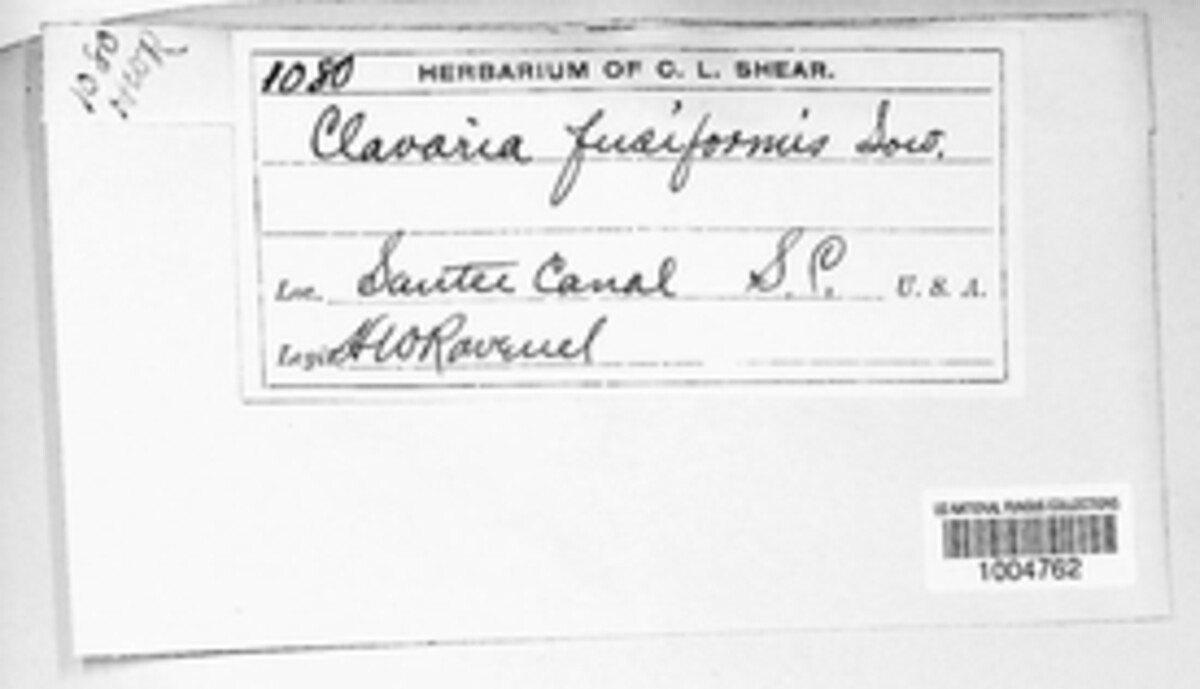 1080
HWR
1080 HERBARIUM OF C. L. SHEAR.
Clavaria fusiformis Sow.
Loc. Santee Canal S.C. U. S. A.
Legit HWRavenel
US NATIONAL FUNGUS COLLECTIONS
1004762